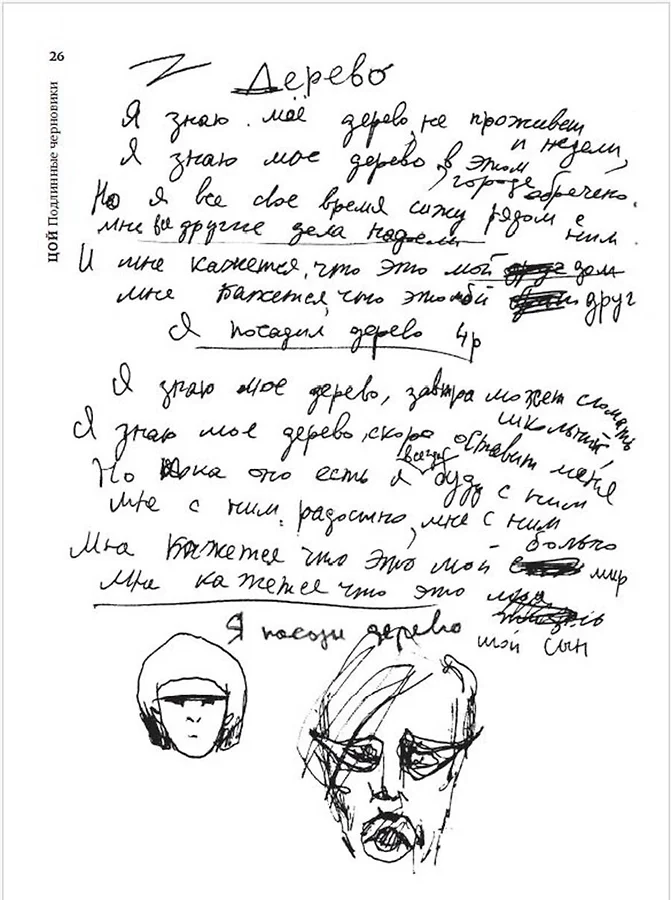 26
ЦОЙ Подлинные черновики
Дерево
Я знаю моё дерево, не проживет и недели,
Я знаю мое дерево в этом городе обречено.
Но я все свое время сижу рядом с ним
Мне все другие дела надоели
И мне кажется, что это мой дом
Мне кажется, что это мой друг
Я посадил дерево 4р
Я знаю мое дерево, завтра может сломать школьник,
Я знаю мое дерево, скоро оставит меня
Но пока оно есть я всегда буду с ним
Мне с ним радостно, мне с ним больно
Мне кажется что это мой мир
Мне кажется что это мой сын
Я посади дерево